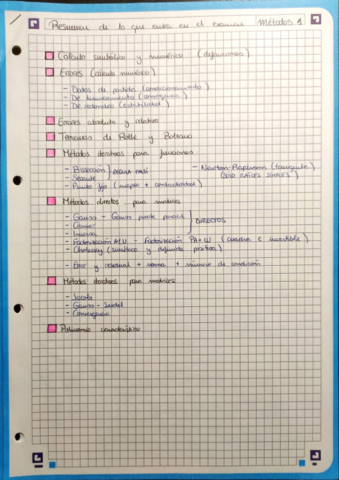 Resumen de lo que entra en el examen Métodos 1
Cálculo simbólico y numérico (definiciones)
Errores (cálculo numérico)
- Datos de partida (condicionamiento)
- De truncamiento (convergencia)
- De redondeo (estabilidad)
Errores absoluto y relativo
Teoremas de Rolle y Bolzano
Métodos iterativos para funciones
- Bisección
- Secante
- Newton-Raphson (tangente)
- Punto fijo (mapeo + contractividad)
Métodos directos para matrices
- Gauss - Gauss pivote parcial
- Cramer
- Inversa
DIRECTOS
- Factorización A=LU - Factorización PA=LU (cuadrada e invertible)
- Cholesky (simétrica y definida positiva)
- Error y residual + norma + número de condición
Métodos iterativos para matrices
- Jacobi
- Gauss-Seidel
- Convergencia
Polinomio característico